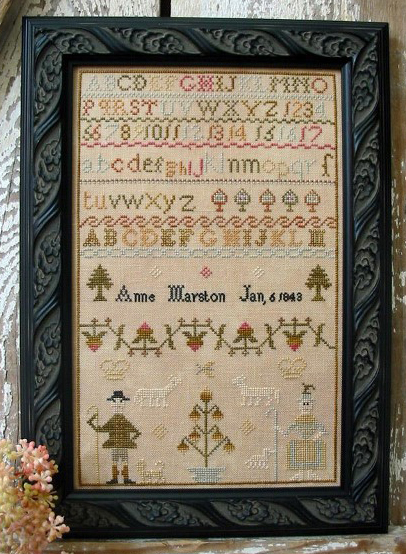 ABCDEFGHIJKLMNO
PQRSTUVWXYZ1234
567891011121314151617
abcdefghijklmnopqrſ
tuvwxyz
ABCDEFGHIJKLM
Anne Marston Jan, 6 1843